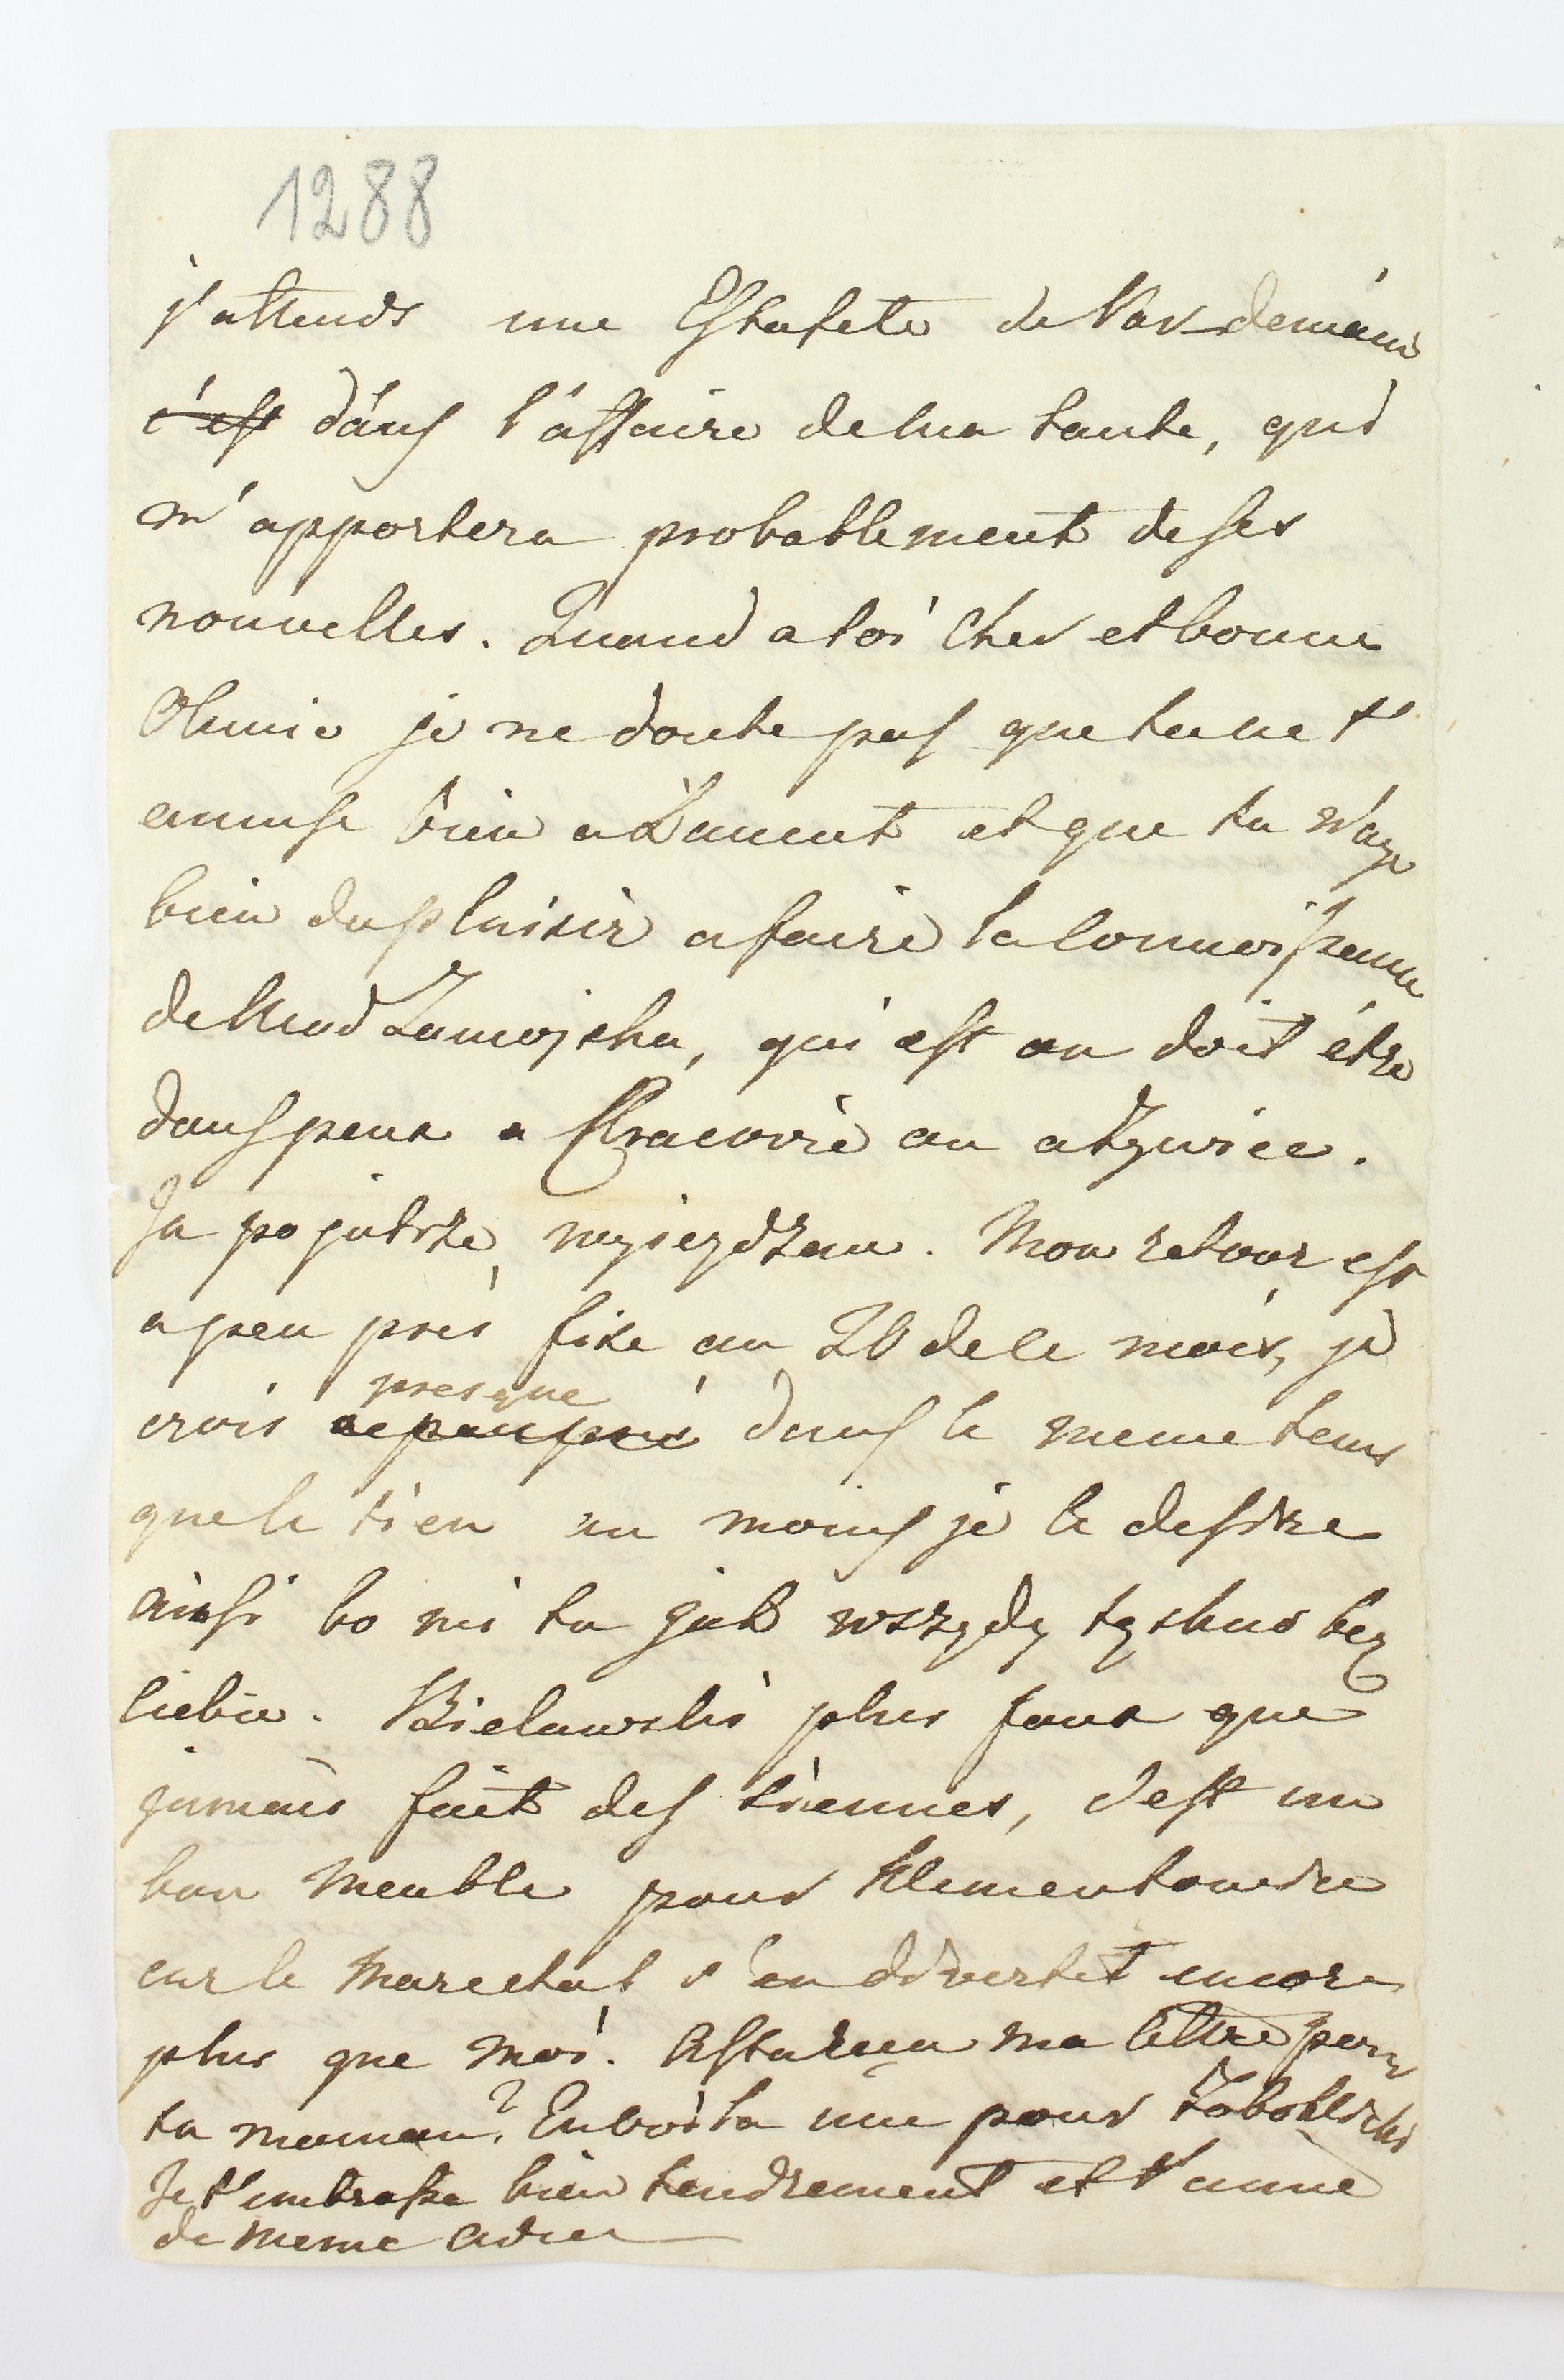 1288
j'attends une Estafete de Var demain
c'est dans l'affaire de ma tante, qui
m'apportera probablement de ses
nouvelles. Quand a toi cher et bonne
Olunie je ne doute pas que tu ne t'
amuse bien a Lancut et que tu n'aye
bien du plaisir a faire la connoissance
de Mad Zamojska, qui est ou doit être
dans peux a Cracovie ou a Dzwiee.
Ja po jutrze wyiezdzam. Mon retour est
a peu près fixe au 20 de ce mois, je
presque
crois a peu près dans le meme tems
que le tien au moins je le desire
ainsi bo mi tu jak wszędy tęskno bez
Ciebie. Bielawski plus foux que
jamais fait des siennes, c'est un
bon meuble pour Klementowice
car le Marechal s'en divertit encore
plus que moi. Astu reçu ma lettre pour
ta maman? En voila une pour Zaboklicki
Je t'embrasse bien tendrement et t'aime
de meme adieu